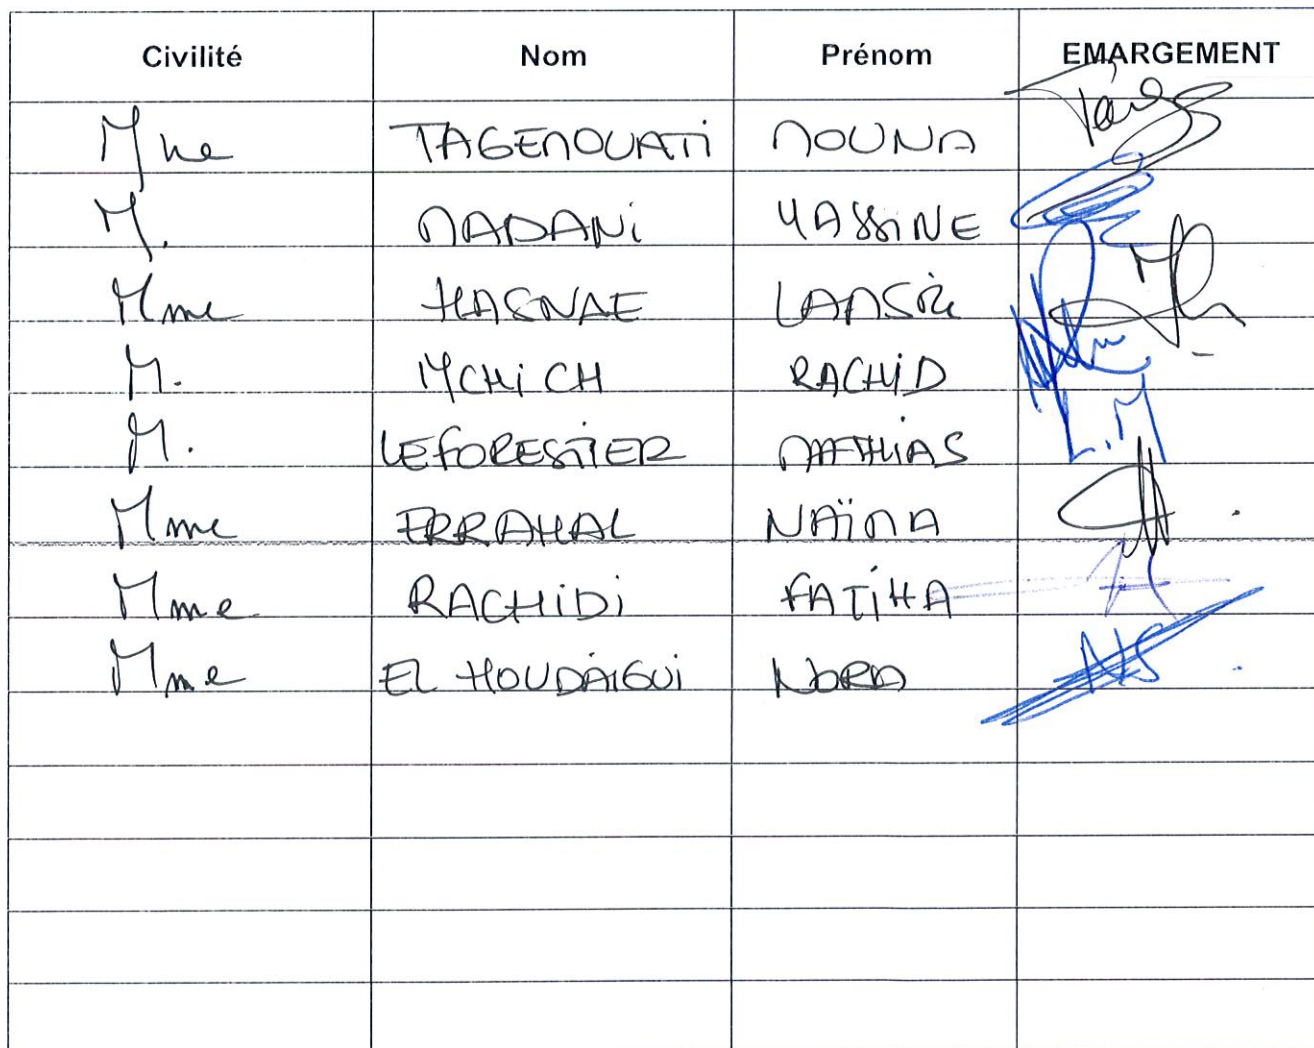 Civilité Nom Prénom EMARGEMENT
Mme TAGEMOUATI MOUNA
M. MADANI YASSINE
Mme HASNAE LAMSIK
M. MCHICH RACHID
M. LEFORESTIER MATHIAS
Mme ERRAHAL NAÏMA
Mme RACHIDI FATIHA
Mme EL HOUDAÏGUI NORA
L.M